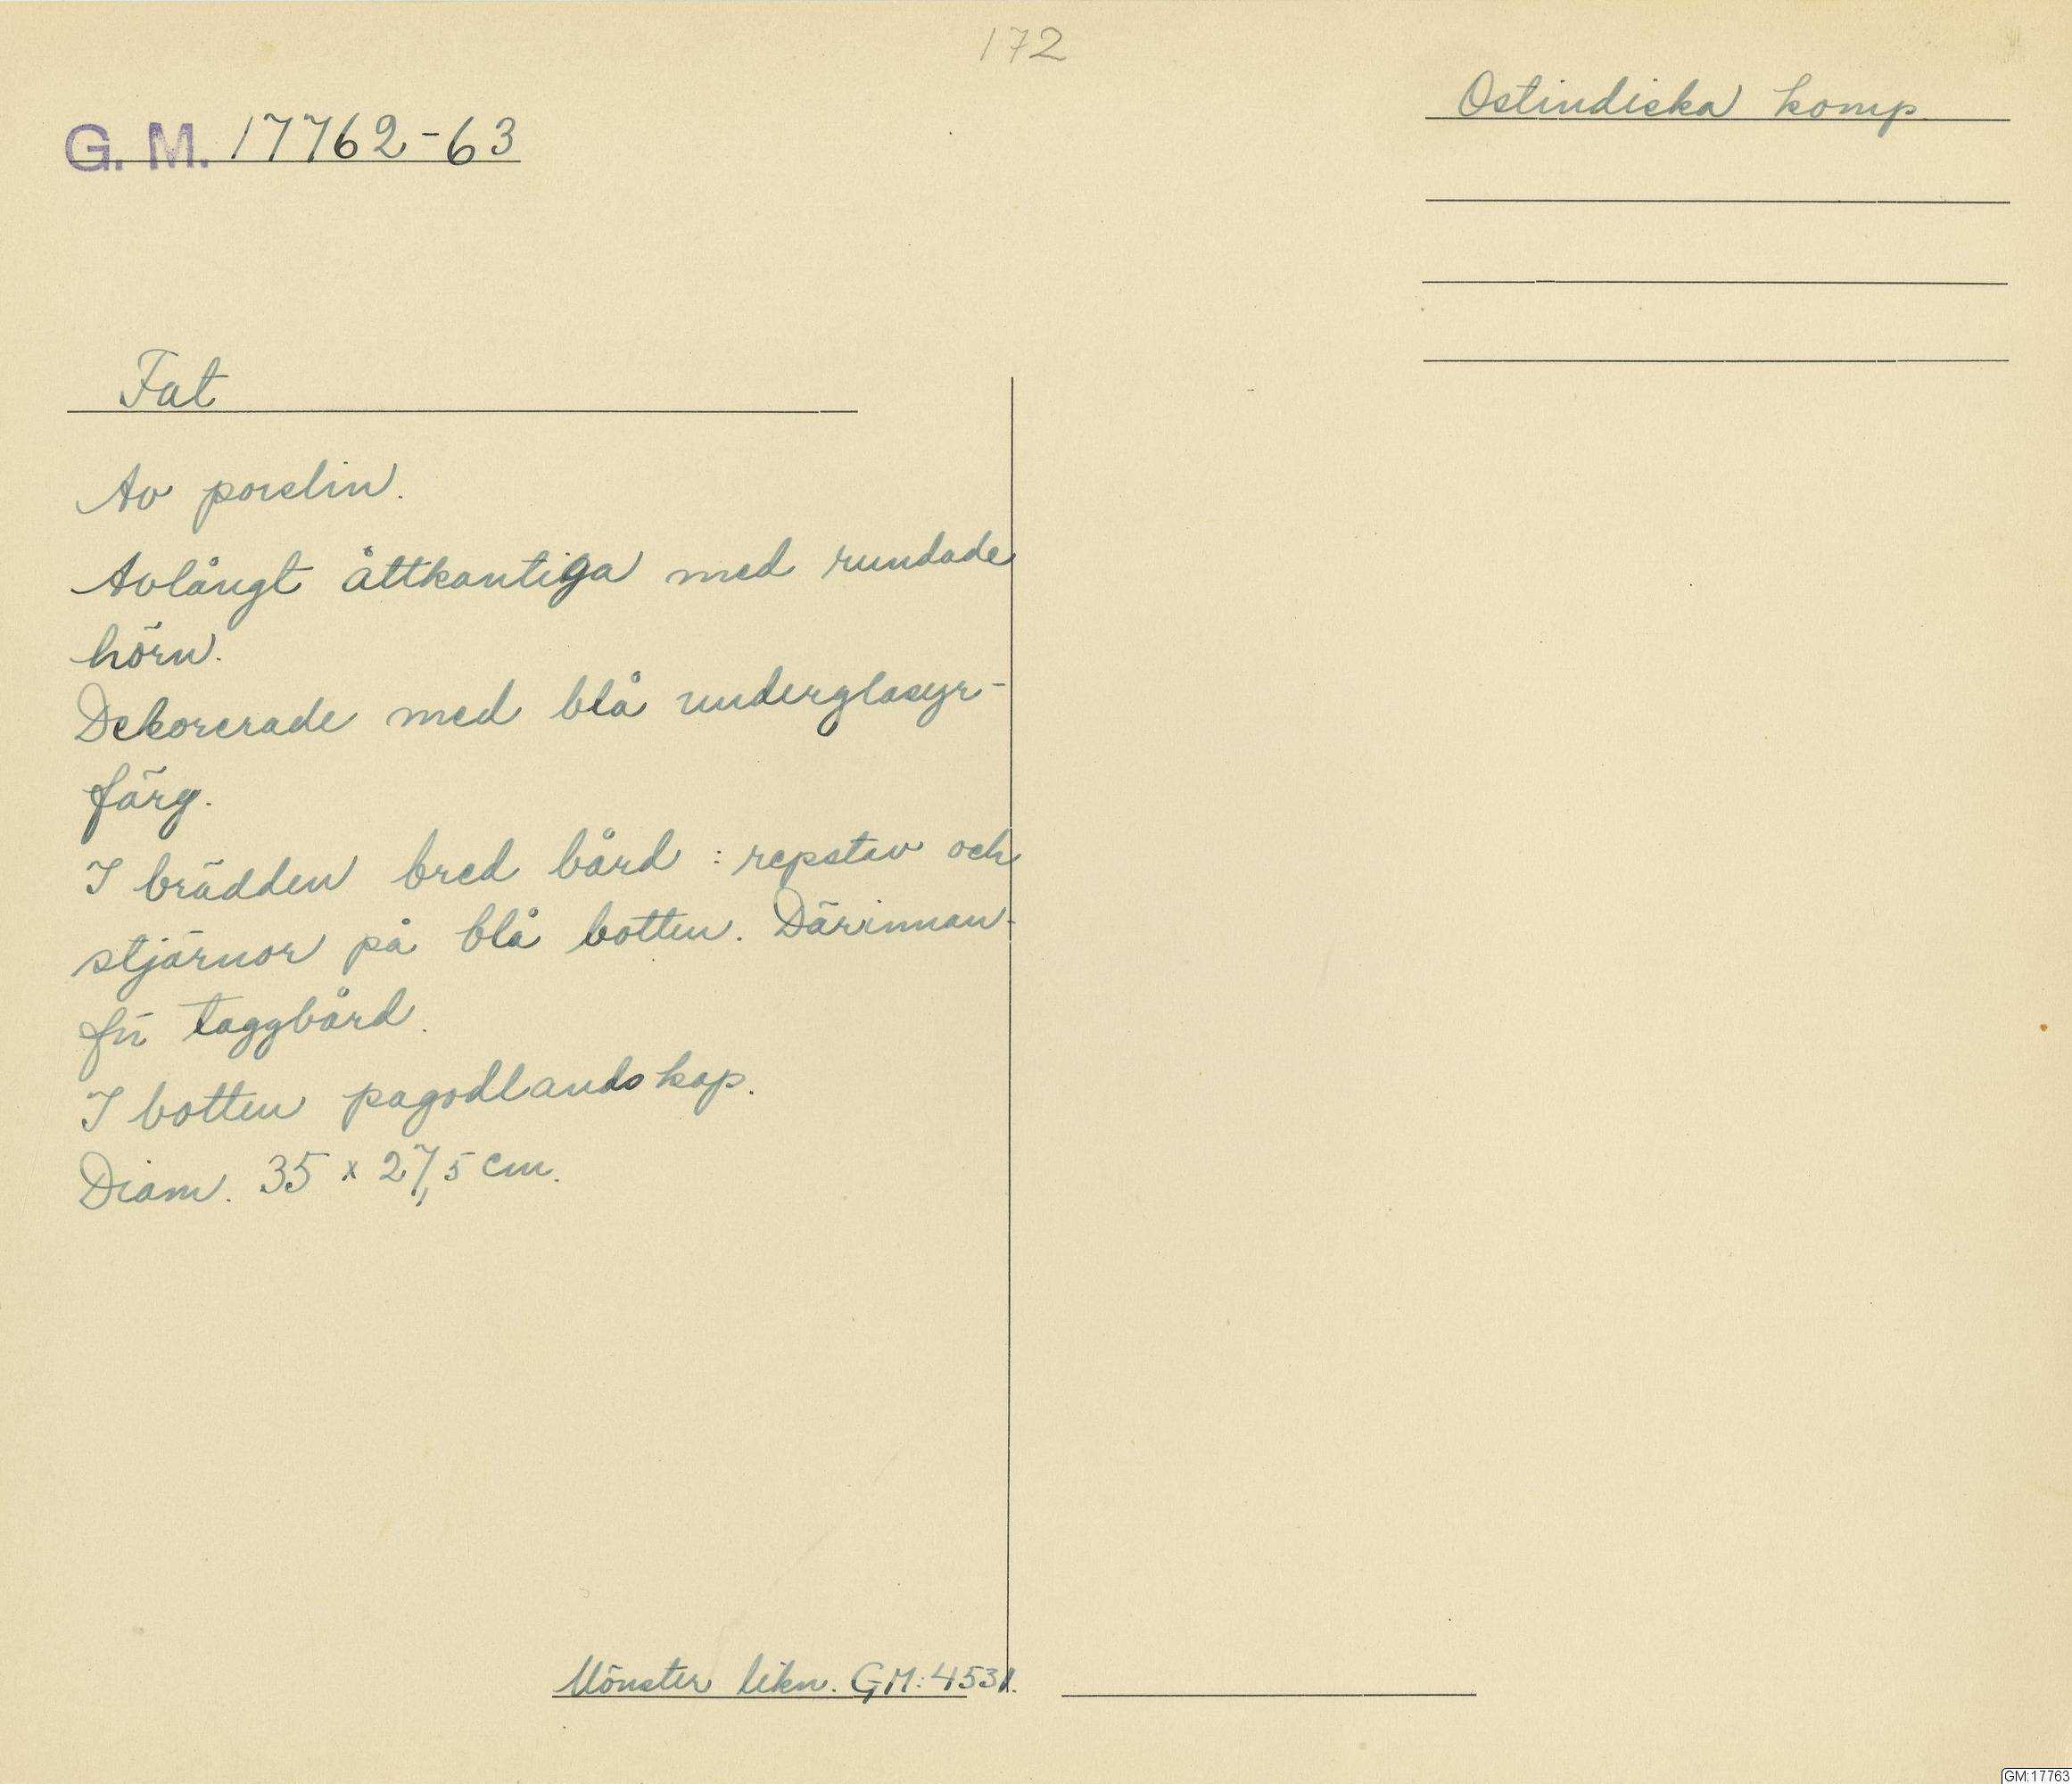 172
Ostindiska komp.
G. M. 17762-63
Fat
Av porslin.
Avlångt åttkantiga med rundade
hörn.
Dekorerade med blå underglasyr-
färg.
I brädden bred bård : repstav och
stjärnor på blå botten. Därinnan-
för taggbård.
I botten pagodlandskap.
Diam. 35 x 27,5 cm.
Mönster likn. GM:4531.
GM:17763